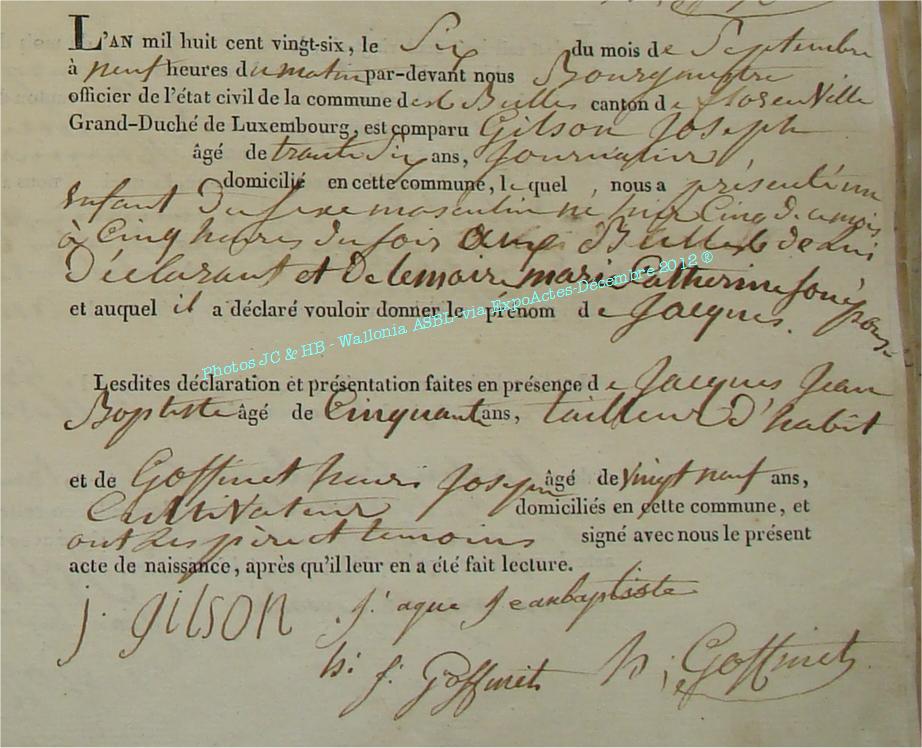 L'AN mil huit cent vingt-six, le Six du mois de Septembre
à neuf heures du matin par-devant nous Bourgmestre
officier de l'état civil de la commune de Bulles canton de florenville
Grand-Duché de Luxembourg, est comparu Gilson Joseph
âgé de trante Six ans, journalier
domicilié en cette commune, lequel, nous a présenté un
enfant du sexe masculin né hier Cinq du mois
à Cinq heures du soir Bulles de lui
Déclarant et de lemoire mari Catherine son épouse
et auquel il a déclaré vouloir donner le prénom de Jacques.
Photos JC & HB - Wallonia ASBL-via ExpoActes-Decembre 2012 ®
Lesdites déclaration et présentation faites en présence de Jacques Jean
Baptiste âgé de Cinquant ans, tailleur d'habit
et de Goffinet henri Joseph âgé de vingt neuf ans,
Cultivateur domiciliés en cette commune, et
ont les père et temoins signé avec nous le présent
acte de naissance, après qu'il leur en a été fait lecture.
j. gilson j. aque jeanbaptiste
h: j. Goffinet h; Goffinet